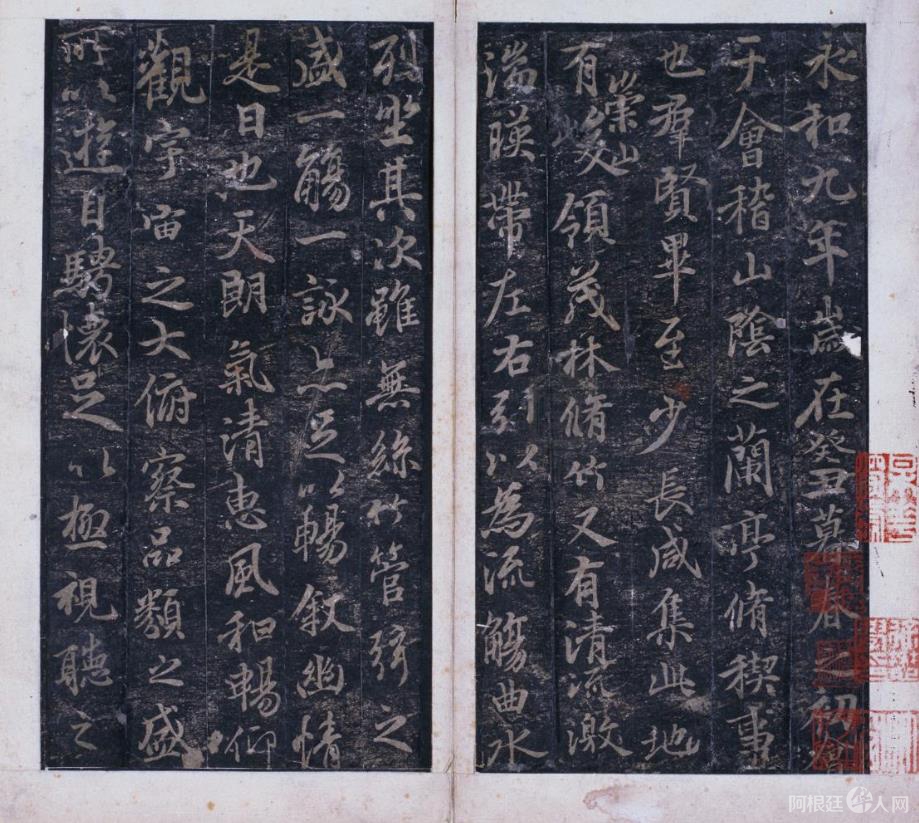 永和九年歲在癸丑暮春之初會
于會稽山陰之蘭亭脩稧事
也羣賢畢至少長咸集此地
有崇山峻領茂林脩竹又有清流激
湍暎帶左右引以為流觴曲水
列坐其次雖無絲竹管弦之
盛一觴一詠亦足以暢敘幽情
是日也天朗氣清惠風和暢仰
觀宇宙之大俯察品類之盛
所以遊目騁懷足以極視聽之
阿根廷华人网